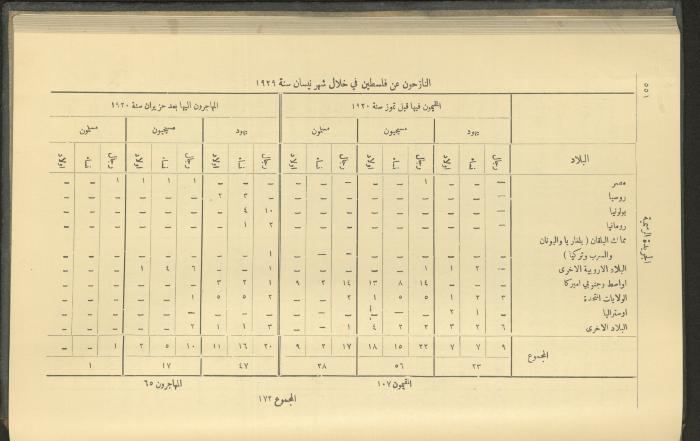 ٥٥١
الجريدة الرسمية
النازحون عن فلسطين في خلال شهر نيسان سنة ١٩٢٩
المقيمون فيها قبل تموز سنة ١٩٢٠ المهاجرون اليها بعد حزيران سنة ١٩٢٠
يهود مسيحيون مسلمون يهود مسيحيون مسلمون
البلاد رجال نساء اولاد رجال نساء اولاد رجال نساء اولاد رجال نساء اولاد رجال نساء اولاد رجال نساء اولاد
مصر – – – ١ – – – – – – – – ١ ١ ١ ١ – –
روسيا – – – – – – – – – – ٣ ٢ – – – – – –
بولونيا – – – – – – – – – ١٠ ٤ – – – – – – –
رومانيا – – – – – – – – – ٢ ١ – – – – – – –
ممالك البلقان ( بلغاريا واليونان
والصرب وتركيا ) – – – – – – – – – ١ – – – – – – – –
البلاد الاروبية الاخرى – ٢ ١ ١ – – – – – ١ – – ٦ ٤ ١ – – –
اواسط وجنوبي اميركا – – – ١٤ ٨ ١٣ ١٤ ٢ ٩ ١ ٢ ٣ – – – – – –
الولايات المتحدة ٣ ٢ ١ ٥ ٥ ١ ٢ – – ٢ ٥ ٥ ١ – – – – –
اوستراليا – ١ ٢ – – – – – – – – – – – – – – –
البلاد الاخرى ٦ ٢ ٣ ٢ ٢ ٤ ١ – – ٣ ١ ١ ٢ – – – – –
المجموع ٩ ٧ ٧ ٢٢ ١٥ ١٨ ١٧ ٢ ٩ ٢٠ ١٦ ١١ ١٠ ٥ ٢ ١ – –
٢٣ ٥٦ ٢٨ ٤٧ ١٧ ١
المقيمون ١٠٧ المهاجرون ٦٥
المجموع ١٧٢